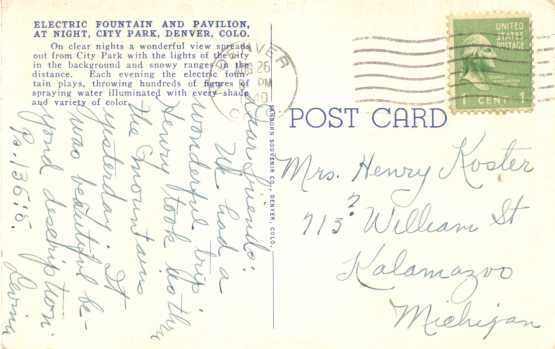 ELECTRIC FOUNTAIN AND PAVILION,
AT NIGHT, CITY PARK, DENVER, COLO.
On clear nights a wonderful view spreads
out from City Park with the lights of the city
in the background and snowy ranges in the
distance. Each evening the electric foun-
tain plays, throwing hundreds of figures of
spraying water illuminated with every shade
and variety of color.
Dear Friends:
We had a
wonderful trip.
Henry took us thru
the mountains
yesterday. It
was beautiful be-
yond description.
Ps. 136:5.
SOUVENIR CO., DENVER, COLO.
DENVER
26
PM
UNITED
STATES
POSTAGE
1 CENT 1
POST CARD
Mrs. Henry Koster
713 ? William St
Kalamazoo
Michigan